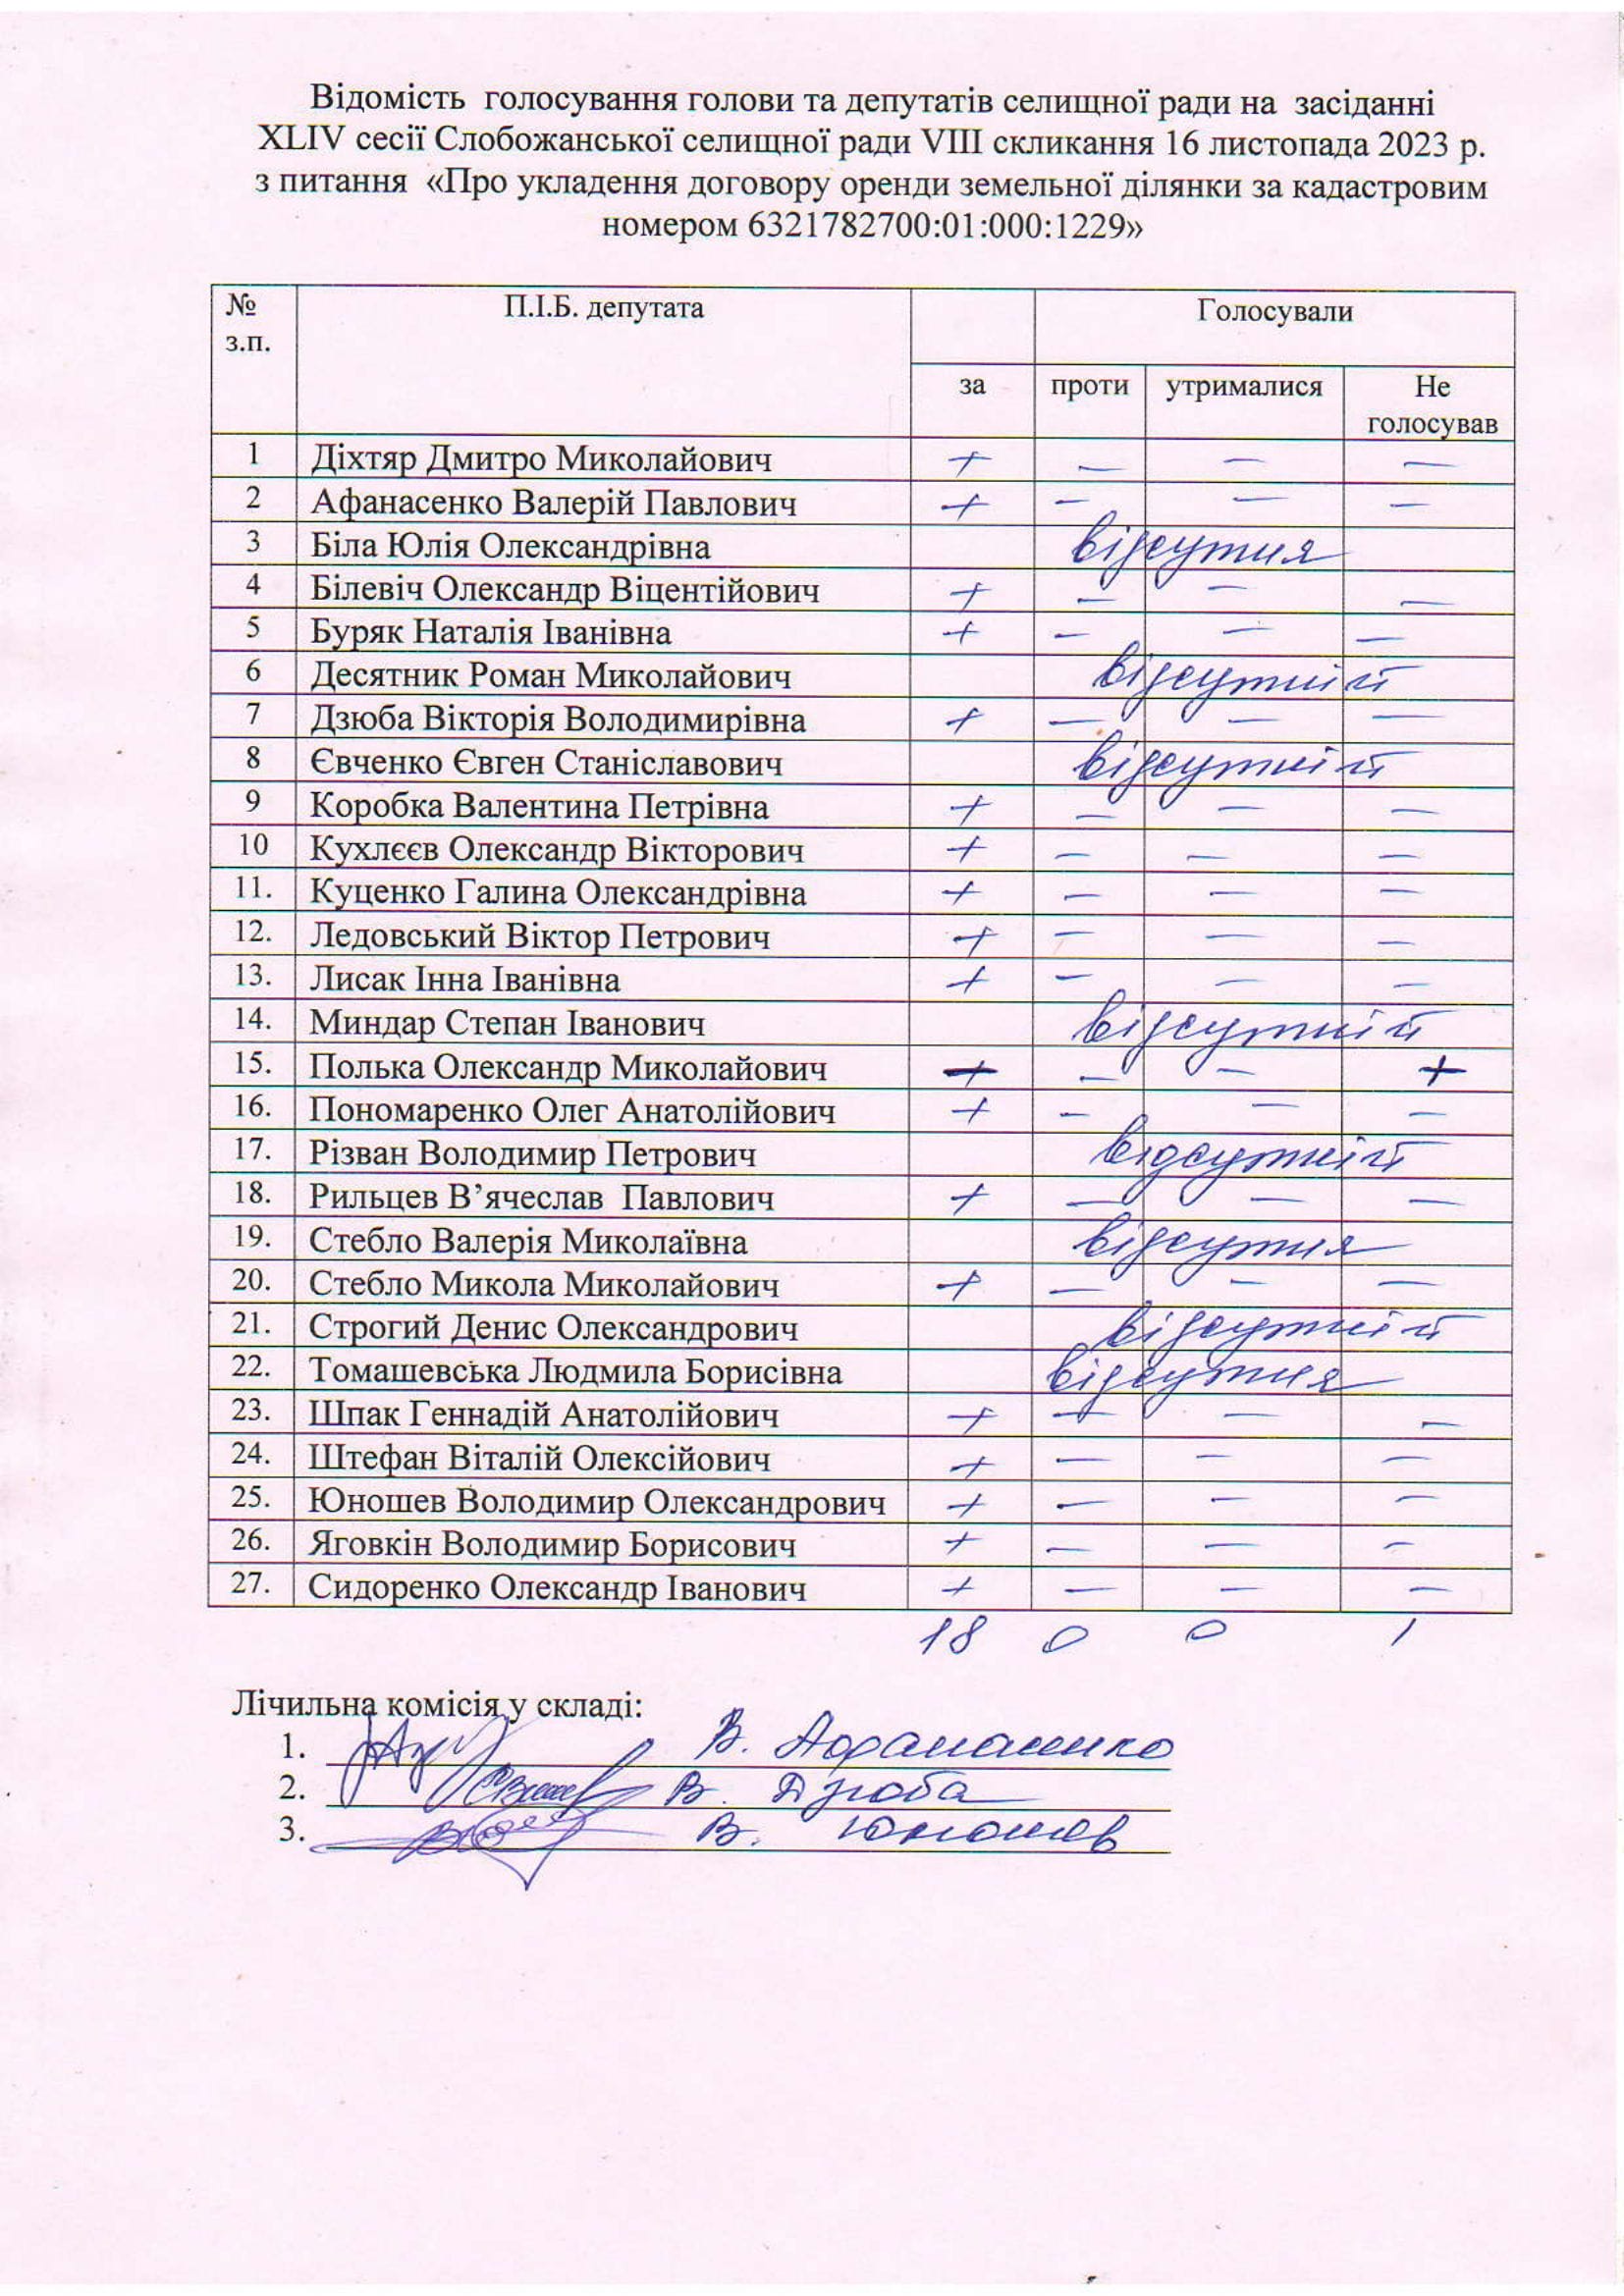 Відомість голосування голови та депутатів селищної ради на засіданні
XLIV сесії Слобожанської селищної ради VIII скликання 16 листопада 2023 р.
з питання «Про укладення договору оренди земельної ділянки за кадастровим
номером 6321782700:01:000:1229»
№ з.п. П.І.Б. депутата Голосували
за проти утрималися Не голосував
1 Діхтяр Дмитро Миколайович + — — —
2 Афанасенко Валерій Павлович + — — —
3 Біла Юлія Олександрівна відсутня
4 Білевіч Олександр Віцентійович + — — —
5 Буряк Наталія Іванівна + — — —
6 Десятник Роман Миколайович відсутній
7 Дзюба Вікторія Володимирівна + — — —
8 Євченко Євген Станіславович відсутній
9 Коробка Валентина Петрівна + — — —
10 Кухлєєв Олександр Вікторович + — — —
11. Куценко Галина Олександрівна + — — —
12. Ледовський Віктор Петрович + — — —
13. Лисак Інна Іванівна + — — —
14. Миндар Степан Іванович відсутній
15. Полька Олександр Миколайович — — — +
16. Пономаренко Олег Анатолійович + — — —
17. Різван Володимир Петрович відсутній
18. Рильцев В’ячеслав Павлович + — — —
19. Стебло Валерія Миколаївна відсутня
20. Стебло Микола Миколайович + — — —
21. Строгий Денис Олександрович відсутній
22. Томашевська Людмила Борисівна відсутня
23. Шпак Геннадій Анатолійович + — — —
24. Штефан Віталій Олексійович + — — —
25. Юношев Володимир Олександрович + — — —
26. Яговкін Володимир Борисович + — — —
27. Сидоренко Олександр Іванович + — — —
18 0 0 1
Лічильна комісія у складі:
1. В. Афанасенко
2. В. Дзюба
3. В. Юношев